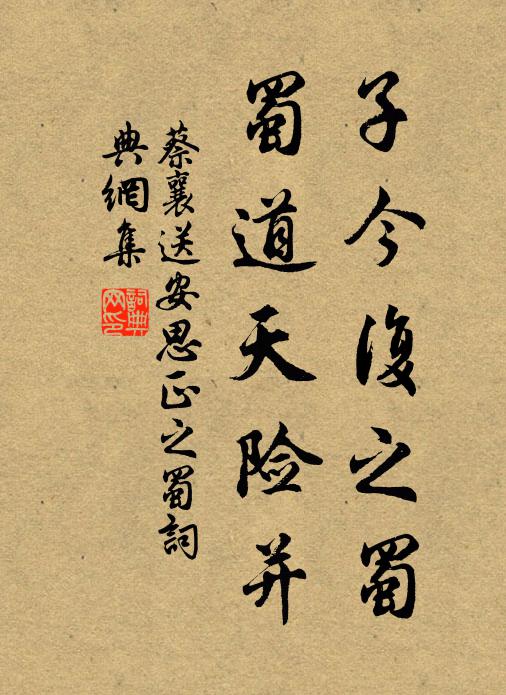 子今復之蜀
蜀道天险并
蔡襄送安思正之蜀詞
典網集
詞典網印